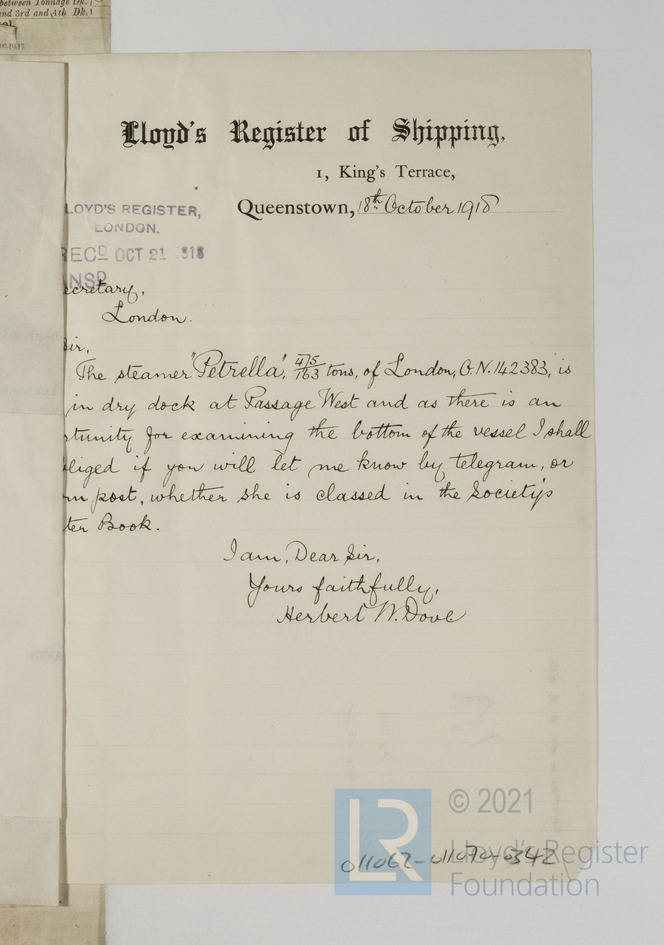 between Tonnage Dk.
and 3rd and 4th Dk.
Lloyd's Register of Shipping,
1, King's Terrace,
Queenstown, 18th October 1918
LOYD'S REGISTER,
LONDON.
REC'D OCT 21 1918
ANSD
ecretary,
London.
Sir,
The steamer "Petrella", 475/163 tons, of London, O.N. 142383, is
in dry dock at Passage West and as there is an
rtunity for examining the bottom of the vessel I shall
bliged if you will let me know by telegram, or
rn post, whether she is classed in the Society's
ter Book.
I am, Dear Sir,
Yours faithfully,
Herbert W. Dove
© 2021
LR
Lloyd's Register
Foundation
011067-011070-0342